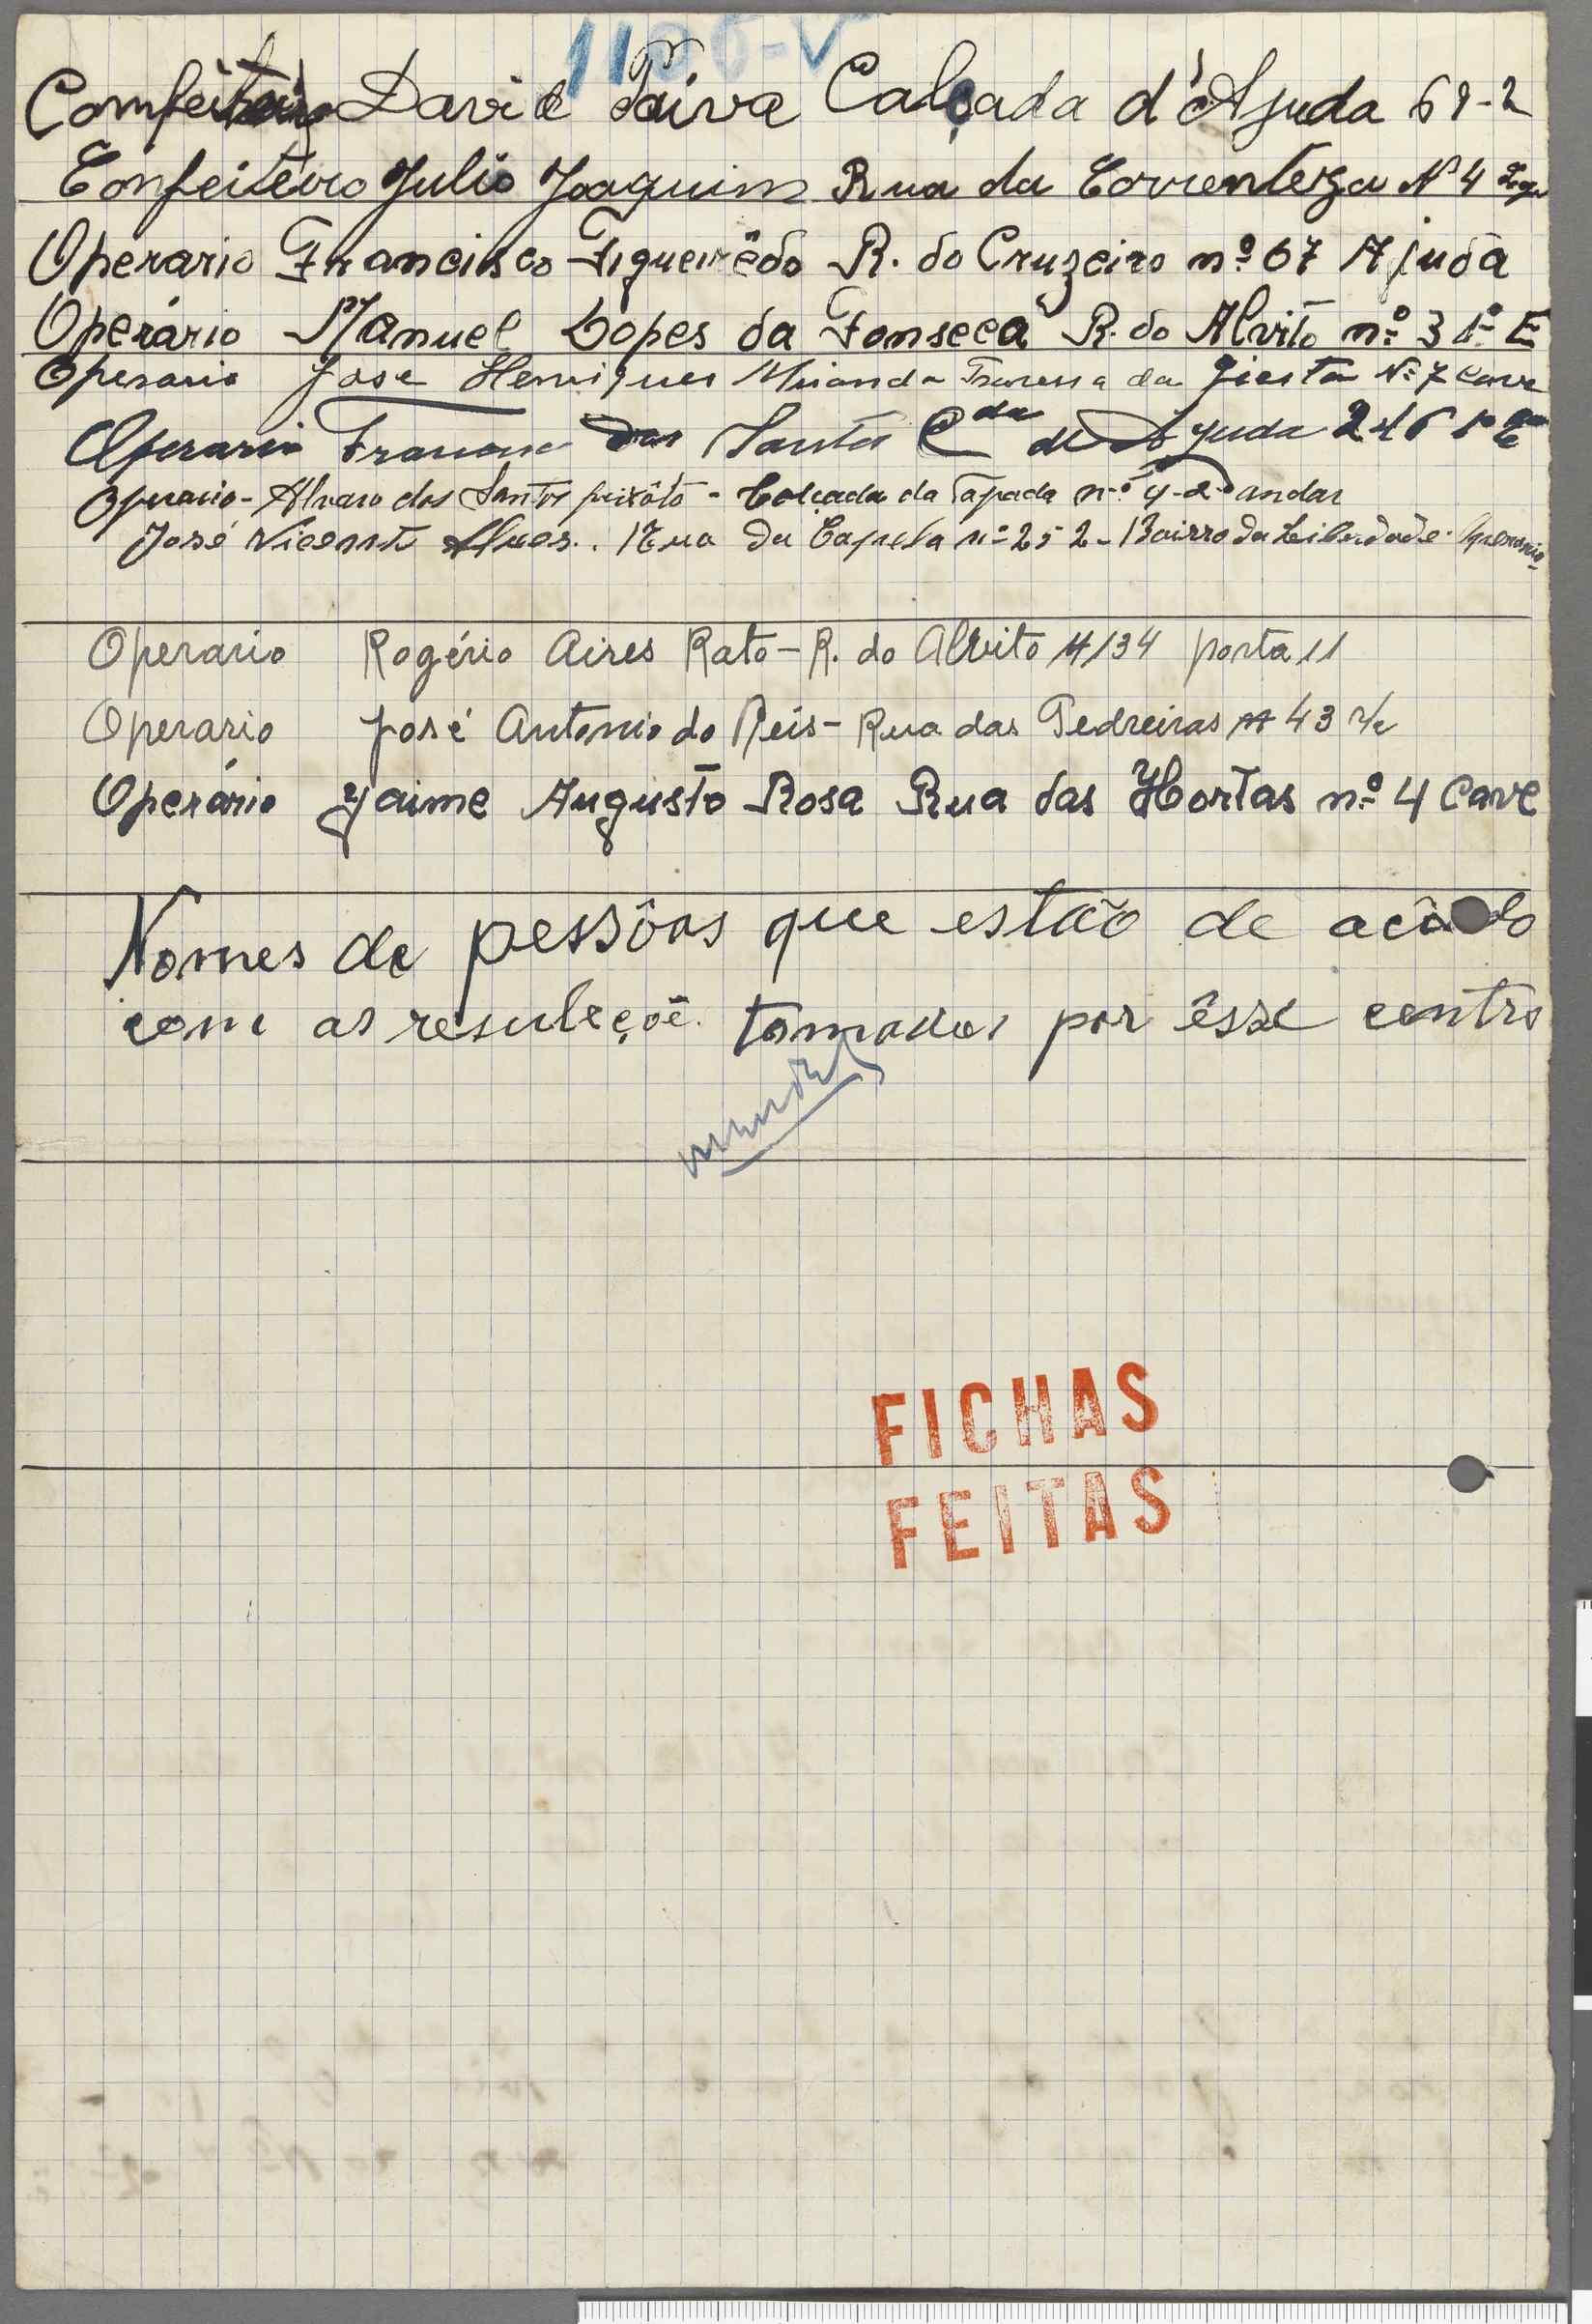 1106-V
Comfeiteiro David Paiva Calçada d'Ajuda 69-2
Confeiteiro Julio Joaquim Rua da Correnteza Nº 4 Loja
Operario Francisco Figueirêdo R. do Cruzeiro nº 67 Ajuda
Operário Manuel Lopes da Fonseca R. do Alvito nº 3 1º E
Operario Jose Henriques Miranda Travessa da Giesta Nº 7 cave
Operario dos Santos Cda de Ajuda 246 1º
Operario - Alvaro dos Santos peixôto - Calçada da Tapada nº 4-2º andar
José Vicente Alves. Rua da Capela nº 252 - Bairro da Liberdade. Operario -
Operario Rogério Aires Rato - R. do Alvito 134 porta 11
Operario José Antonio do Reis - Rua das Pedreiras 43 r/c
Operário Jaime Augusto Rosa Rua das Hortas nº 4 Cave
Nomes de pessôas que estão de acôrdo
com as resuleçoẽ tomadas por êsse centro
FICHAS
FEITAS